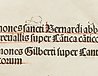 mones sancti Bernardi abb
revallis super Cantica cantic
mones Gilberti super Cant
torum